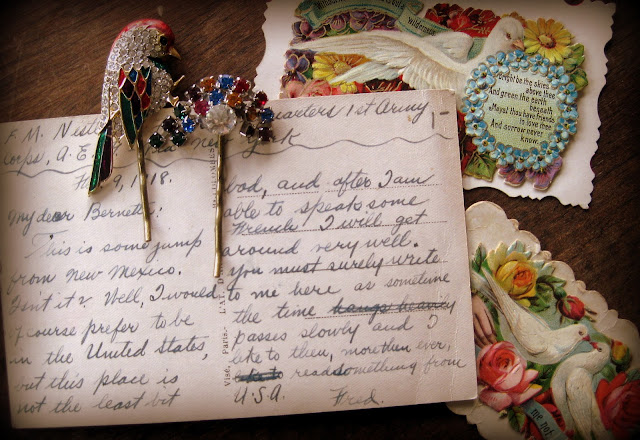 F. M. Nestle
quarters 1st Army,
Corps, A. E.
York
9, 1918.
My dear Bernett:
This is some jump
from New Mexico.
Isn't it? Well, I would
of course prefer to be
in the United States,
but this place is
not the least bit
bad, and after I am
able to speak some
French I will get
around very well.
You must surely write
to me here as sometime
the time hangs heavily
passes slowly and I
like to then, more than ever,
like to read something from
U.S.A. Fred.
Visé, Paris
Bright be the skies
above thee
And green the earth
beneath
Mayst thou have friends
to love thee
And sorrow never
know.
me not